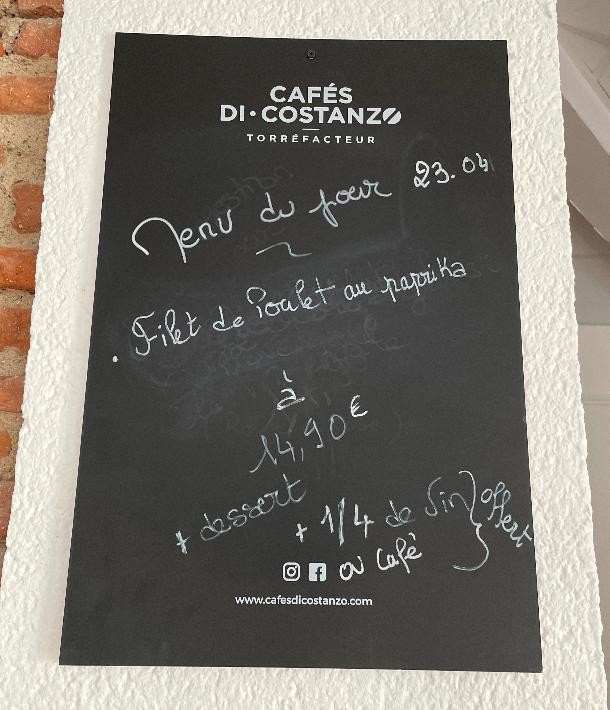 CAFÉS
DI•COSTANZO
TORRÉFACTEUR
Menu du jour 23.04
~
. Filet de Poulet au paprika
à
14,90€
+ dessert + 1/4 de Vin } offert
ou Café
www.cafesdicostanzo.com